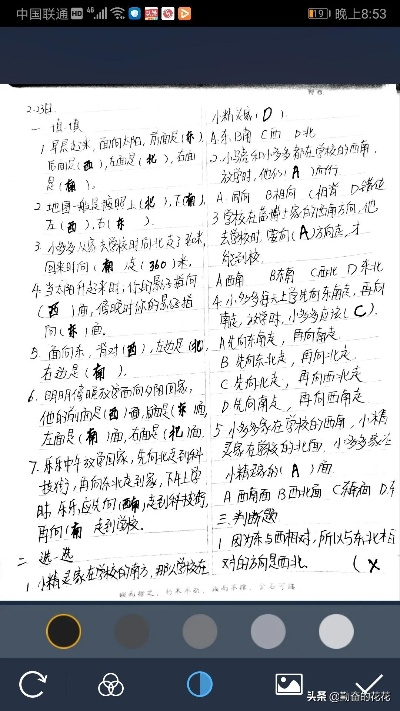 中国联通 HD 4G
19 晚上8:53
一 填填
1.早晨起来,面向太阳,前面是(东),
后面是(西),左面是(北),右面
是(南)。
2.地图一般是按照上(北),下(南),
左(西),右(东)。
3.小多多从家去学校时向北走了360米,
回来时向(南)走(360)米。
4.当太阳升起来时,你的影子指向
(西)面,傍晚时你的影子指
向(东)面。
5.面向东,背对(西),左边是(北)
右边是(南)。
6.明明傍晚放学面向夕阳回家,
他的前面是(西)面,后面是(东)面,
左面是(南)面,右面是(北)面。
7.乐乐中午放学回家,先向北走到科
技街,再向东北走到家,下午上学
时,乐乐应先向(西南)走到科技街,
再向(南)走到学校。
二 选选
1.小精灵家在学校的南方,那么学校在
小精灵家(D)
A.东 B南 C西 D北
放学时,他们(A)而行
A 同向 B相向 C相背 D错位
3.学校在蓝博士家的西南方向,他
去学校时,要向(A)方向走,才
能到校.
A西南 B东南 C西北 D东北
4.小多多每天上学先向东南走,再向
南走,放学时,小多多应该(C).
A先向东南走,再向南走.
B 先向东北走,再向北走.
C 先向北走,再向西北走
D 先向南走,再向西南走.
5 小多多家在学校的西南,小精
灵家在学校的北面,小多多家在
小精灵家的(A)面
A 西南面 B西北面
三.判断题
1.因为东与西相对,所以与东北相
对的方向是西北. (×
头条 @勤奋的花花